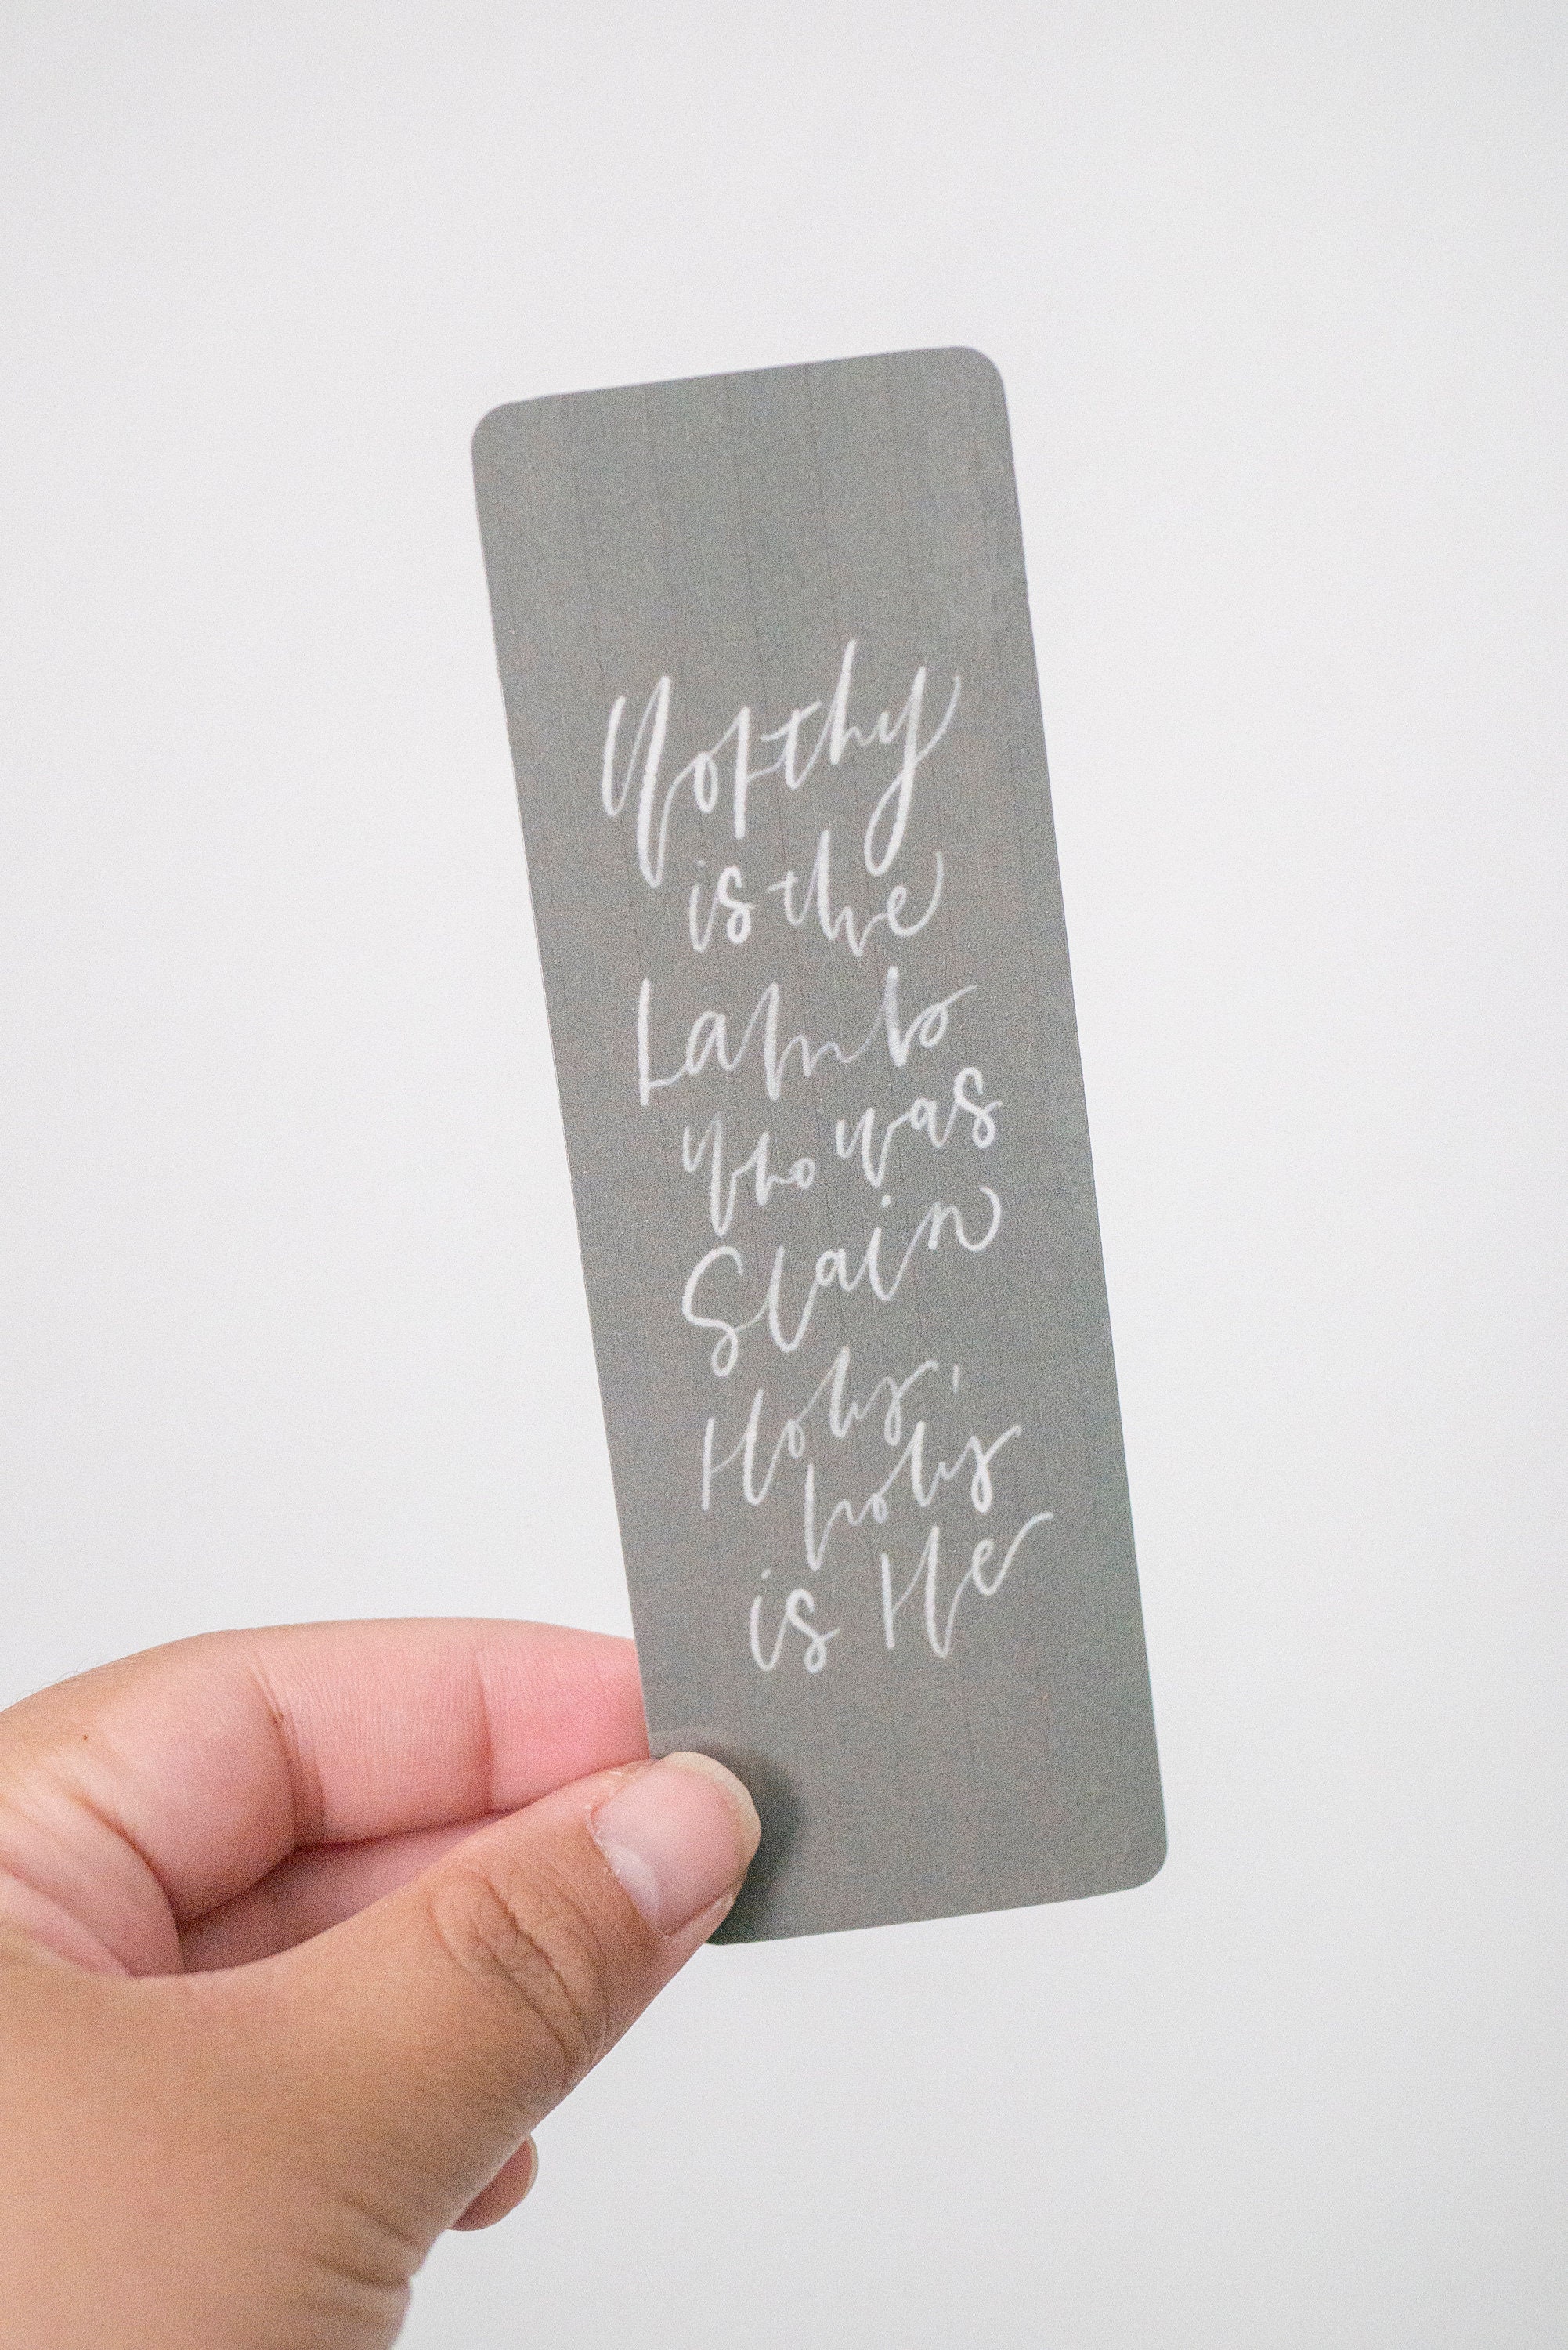 Worthy
is the
Lamb
Who was
Slain
Holy,
holy
is He